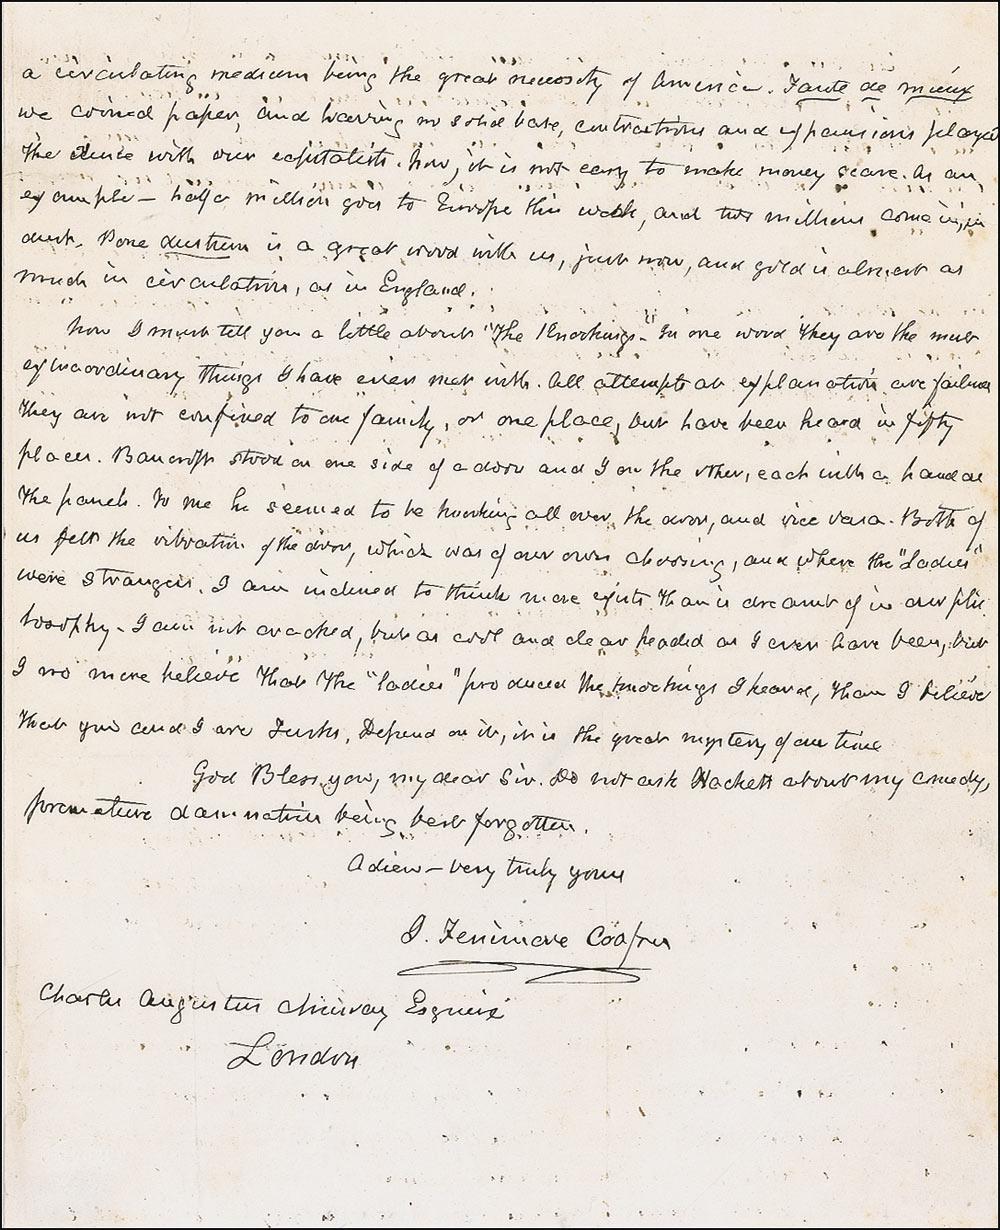 a circulating medium being the great necessity of America. Faute de mieux
we coined paper, and having no solid base, contractions and expansions played
the deuce with our capitalists. Now, it is not easy to make money scarce. As an
example – half a million goes to Europe this week, and two millions come in, in
dust. Pone dustrum is a great word with us, just now, and gold is almost as
much in circulation, as in England.
Now I must tell you a little about "The Knockings." In one word they are the most
extraordinary things I have ever met with. All attempts at explanation are failures
They are not confined to one family, or one place, but have been heard in fifty
places. Bancroft stood on one side of a door and I on the other, each with a hand on
the panels. To me he seemed to be knocking all over the door, and vice versa. Both of
us felt the vibration of the door, which was of our own choosing, and where the "ladies"
were strangers. I am inclined to think more exists than is dreamt of in our phi
losophy. I am not cracked, but as cool and clear headed as I ever have been, but
I no more believe that the "ladies" produced the knockings I heard, than I believe
that you and I are Turks. Depend on it, it is the great mystery of our time
God Bless you, my dear Sir. Do not ask Hackett about my comedy,
premature damnation being best forgotten.
Adieu – very truly yours
J. Fenimore Cooper
Charles Augustus Murray Esquire
London